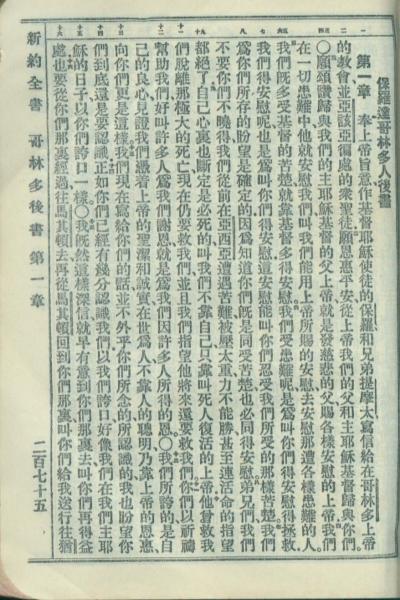 保羅達哥林多人後書
第一章 奉上帝旨意作基督耶穌使徒的保羅和兄弟提摩太寫信給在哥林多上帝
的教會並亞該亞徧處的衆聖徒願恩惠平安從上帝我們的父和主耶穌基督歸與你們。
○願頌讚歸與我們的主耶穌基督的父上帝就是發慈悲的父賜各樣安慰的上帝我們
在一切患難中他就安慰我們叫我們能用上帝所賜的安慰去安慰那遭各樣患難的人。
我們既多受基督的苦楚就靠基督多得安慰我們受患難呢是爲叫你們得安慰得拯救
我們得安慰呢也是爲叫你們得安慰這安慰能叫你們忍受我們所受的那樣苦楚我們
爲你們所存的盼望是確定的因爲知道你們既是同受苦楚也必同得安慰弟兄們我們
不要你們不曉得我們從前在亞西亞遭遇苦難被壓太重力不能勝甚至連活命的指望
都絕了自己心裏也斷定是必死的叫我們不靠自己只靠叫死人復活的上帝他曾救我
們脫離那極大的死亡現在仍要救我們並且我們指望他將來還要救我們你們以祈禱
幫助我們好叫許多人爲我們謝恩就是爲我們因許多人所得的恩○我們所誇的是自
己的良心見證我們憑着上帝的聖潔和誠實在世爲人不靠人的聰明乃靠上帝的恩惠
向你們更是這樣我們現在寫給你們的話並不外乎你們所念的所認識的我也盼望你
們到底還是要認識正如你們已經有幾分認識我們以我們誇口好像我們在我們主耶
穌的日子以你們誇口一樣○我既然這樣深信就早有意到你們那裏去叫你們再得益
處也要從你們那裏經過往馬其頓去再從馬其頓回到你們那裏叫你們給我送行往猶
新約全書 哥林多後書 第一章 二百七十五